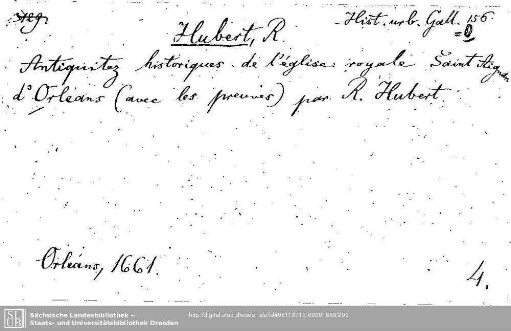 Hubert, R
Hist. urb. Gall. 156
Antiquitez historiques de l'église royale Saint Aignan
d'Orléans (avec les preuves) par R. Hubert.
Orléans, 1661.
4.
Sächsische Landesbibliothek –
Staats- und Universitätsbibliothek Dresden